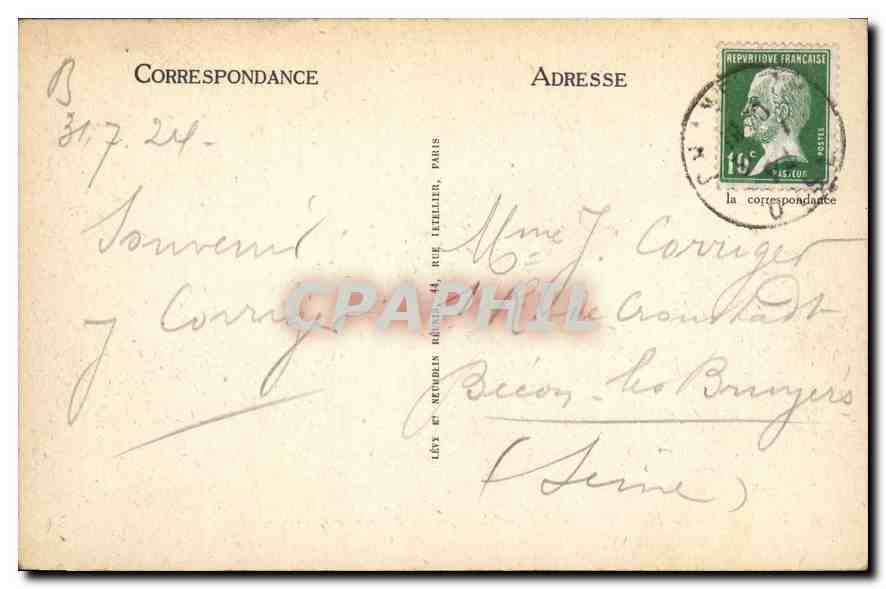 CORRESPONDANCE
ADRESSE
REPVBLIQVE FRANCAISE
10c
POSTES
PASTEUR
la correspondance
B
31.7.24-
Souvenir
J Corriger
Mme J. Corriger
Rue Cronstadt
Bécon-les Bruyères
(Seine)
LÉVY Et NEURDEIN RÉUNIS, 44, RUE LETELLIER, PARIS
CPAPHIL